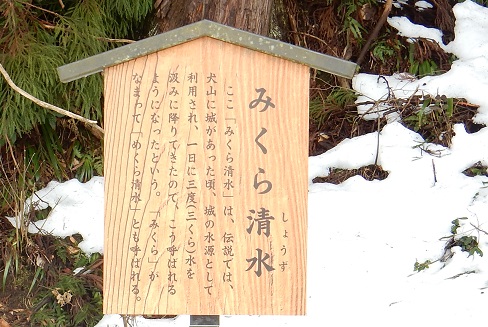 みくら清水
しょうず
ここ「みくら清水」は、伝説では、
犬山に城があった頃、城の水源として
利用され、一日に三度(三くら)水を
汲みに降りてきたので、こう呼ばれる
ようになったという。「みくら」が
なまって「めくら清水」とも呼ばれる。